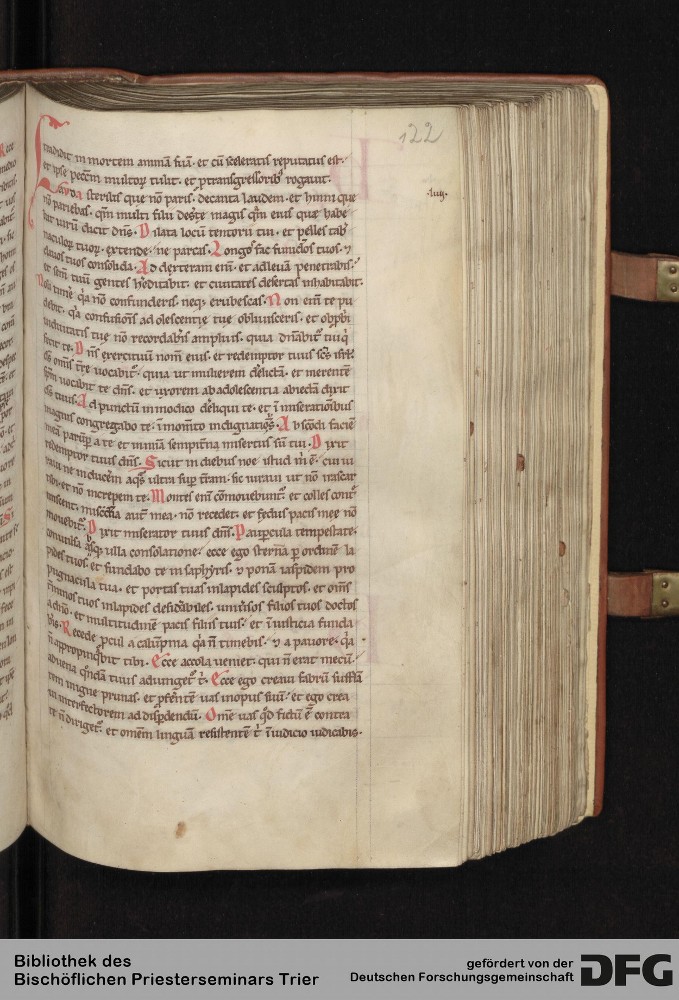 122
tradidit in mortem animã suã· et cũ sceleratis reputatus est·
et ipse peccm̃ multoꝝ tulit· et ptransgressorib' rogauit·
Lauda sterilis que nõ paris· decanta laudem· et hinni que
·liiij·
nõ pariebas· qm̃ multi filii des̃te magis qm̃ eius que habe
bat uirũ dicit dñs· Dilata locũ tentorii tui· et pelles tab
naculoꝝ tuoꝝ extende· ne parcas· Longos fac funiclos tuos· ⁊
clauos tuos consolida· Ad dexteram eni᷑· et ad leuã penetrabis·
et sem̃ tuũ gentes hẽditabit· et ciuitates desertas inhabitabit·
Noli timẽ q̃a nõ confunderis· neq; erubescas· Non eni᷑ te pu
debit· q̃a confusiõis adolescentie tue obliuisceris· et obprobri
uiduitatis tue nõ recordab̃is amplius· quia dñabit᷑ tui q̃
fecit te· Dñs exercituũ nom̃ eius· et redemptor tuus scs̃ isrl̃·
ds̃ om̃is tr̃e uocabit᷑· quia ut mulierem delictã· et merentẽ
sp̃u uocabit te dñs· et uxorem ab adolescentia abiectã dixit
ds̃ tuus· Ad punctũ in modico deliqui te· et ĩ miseratiõibus
magnis congregabo te· ĩ momẽto indignatiõis· Abscõdi faciẽ
meã parũp a te· et in mĩa sempitna misertus sũ tui· Dixit
redemptor tuus dñs· Sicut in diebus noe istud m̃ ẽ· cui iu
raui ne inducẽm aq̃s ultra sup tr̃am· sic iuraui ut nõ irascar
tibi· et nõ increpem te· Montes eni᷑ cõmouebunt᷑· et colles cont᷑
miscent· misc̃dia aut᷑ mea· nõ recedet· et fedus pacis mee nõ
mouebit᷑· Dixit miserator tuus dñs· Paupercula tempestate·
conuulsa absq; ulla consolatione· ecce ego sternã p ordinẽ la
pides tuos· et fundabo te in saphyris· ⁊ ponã iaspidem pro
pugnacula tua· et portas tuas in lapides scluptos· et om̃s
t᷑minos tuos in lapides desidẽbiles· uniũsos filios tuos doctos
a dño· et multitudinẽ pacis filiis tuis· et ĩ iusticia funda
b̃is· Recede p̃cul a calũpnia q̃a ñ timebis· ⁊ a pauore· q̃a
ñ appropinq̃bit tibi· Ecce accola ueniet· qui ñ erat mecũ·
aduena q̃ndã tuus adiunget᷑ t'· Ecce ego creaui fabrũ sufflã
tem in igne prunas· et p̃ferẽtẽ uas in opus suũ· et ego crea
ui interfectorem ad disp̃dendũ· Om̃e uas q̃d fictũ ẽ contra
te ñ diriget᷑· et om̃em linguã resistentẽ t' ĩ iudicio iudicabis·
Bibliothek des
Bischöflichen Priesterseminars Trier
gefördert von der
Deutschen Forschungsgemeinschaft
DFG